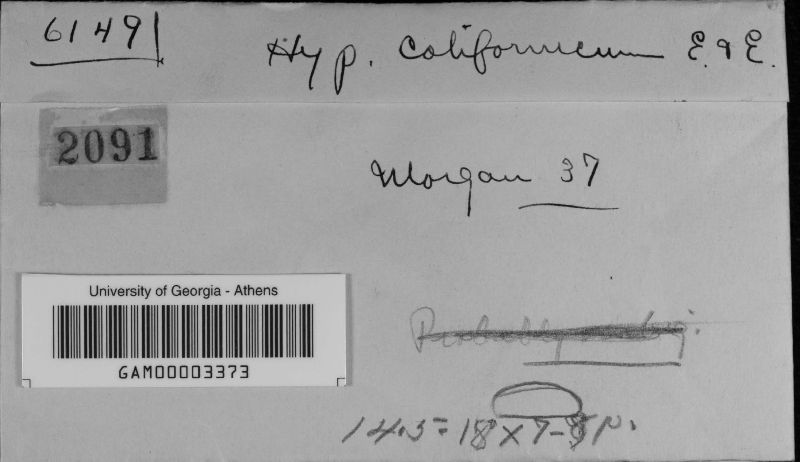 6149
Hyp. californicum E. & E.
2091
Morgan 37
University of Georgia - Athens
GAM00003373
Probably
14.5-18 x 7-8 µ.